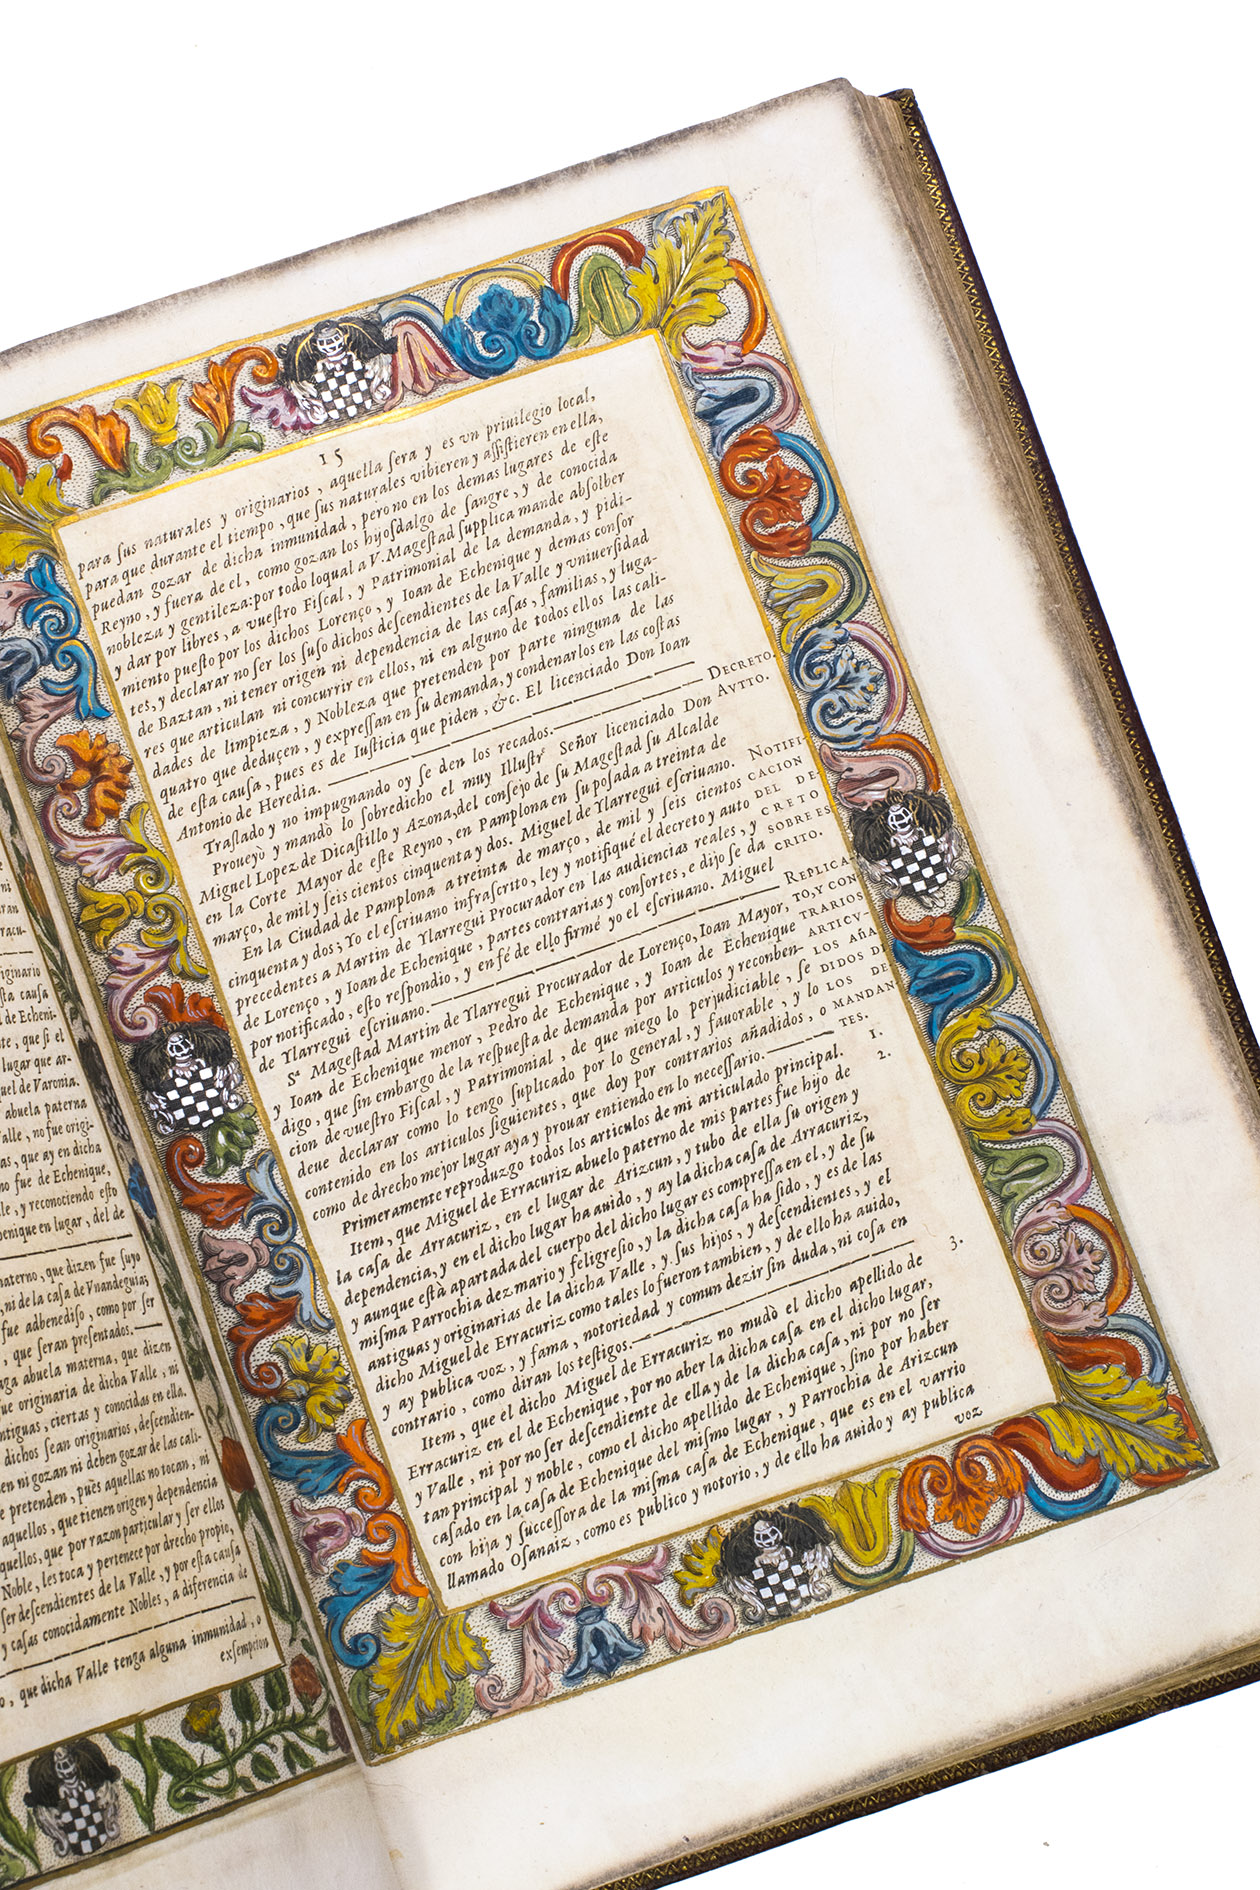 ni
aran
raçu-
iginario
sta causa
d de Echeni-
te, que si el
lugar que ar-
uel de Varonia.
abuela paterna
alle, no fue origi-
as, que ay en dicha
no fue de Echenique,
lle, y reconociendo esto
enique en lugar, del de
aterno, que dizen fue suyo
, ni de la casa de Vnandeguia;
fue adhenediso, como por ser
, que seran presentados.
nga abuela materna, que dizen
ue originaria de dicha Valle, ni
ntiguas, ciertas y conocidas en ella.
dichos sean originarios, descendien-
en ni gozan ni deben gozar de las cali-
e pretenden, pues aquellas no tocan, ni
aquellos, que tienen origen y dependencia
quellos, que por razon particular y ser ellos
Noble, les toca y pertenece por drecho propio,
ser descendientes de la Valle, y por esta causa
y casas conocidamente Nobles, a diferencia de
o, que dicha Valle tenga alguna inmunidad, o
exsempcion
15
para sus naturales y originarios, aquella sera y es vn priuilegio local,
para que durante el tiempo, que sus naturales vibieren y assistieren en ella,
puedan gozar de dicha inmunidad, pero no en los demas lugares de este
Reyno, y fuera de el, como gozan los hijosdalgo de sangre, y de conocida
nobleza y gentileza: por todo loqual a V. Magestad supplica mande absolber
y dar por libres, a vuestro Fiscal, y Patrimonial de la demanda, y pidi-
miento puesto por los dichos Lorenço, y Ioan de Echenique y demas consor
tes, y declarar no ser los suso dichos descendientes de la Valle y vniuersidad
de Baztan, ni tener origen ni dependencia de las casas, familias, y luga-
res que articulan ni concurrir en ellos, ni en alguno de todos ellos las cali-
dades de limpieza, y Nobleza que pretenden por parte ninguna de las
quatro que deduçen, y expressan en su demanda, y condenarlos en las costas
de esta causa, pues es de Iusticia que piden, &c. El licenciado Don Ioan
Antonio de Heredia.
Traslado y no impugnando oy se den los recados. DECRETO.
Proueyò y mandò lo sobredicho el muy Illustre Señor licenciado Don AVTTO.
Miguel Lopez de Dicastillo y Azona, del consejo de su Magestad su Alcalde
en la Corte Mayor de este Reyno, en Pamplona en su posada a treinta de
março, de mil y seis cientos cinquenta y dos. Miguel de Ylarregui escriuano.
En la Ciudad de Pamplona a treinta de março, de mil y seis cientos
cinquenta y dos; Yo el escriuano infrascrito, ley y notifiqué el decreto y auto
precedentes a Martin de Ylarregui Procurador en las audiencias reales, y
de Lorenço, y Ioan de Echenique, partes contrarias y consortes, e dijo se da
por notificado, esto respondio, y en fé de ello firmé yo el escriuano. Miguel
de Ylarregui escriuano.
NOTIFI-
CACION
DEL DE-
CRETO
SOBRE ES
CRITO.
Sª Magestad Martin de Ylarregui Procurador de Lorenço, Ioan Mayor,
y Ioan de Echenique menor, Pedro de Echenique, y Ioan de Echenique
digo, que sin embargo de la respuesta de demanda por articulos y reconben-
cion de vuestro Fiscal, y Patrimonial, de que niego lo perjudiciable, se
deue declarar como lo tengo suplicado por lo general, y fauorable, y lo
contenido en los articulos siguientes, que doy por contrarios añadidos, o
como de drecho mejor lugar aya y prouar entiendo en lo necessario.
REPLICA-
TO, Y CON
TRARIOS
ARTICV-
LOS AÑA
DIDOS D
LOS DE
MANDAN
TES.
Primeramente reproduzgo todos los articulos de mi articulado principal. 1.
Item, que Miguel de Erracuriz abuelo paterno de mis partes fue hijo de 2.
la casa de Arracuriz, en el lugar de Arizcun, y tubo de ella su origen y
dependencia, y en el dicho lugar ha auido, y ay la dicha casa de Arracuriz,
y aunque està apartada del cuerpo del dicho lugar es compressa en el, y de su
misma Parrochia dezmario y feligresio, y la dicha casa ha sido, y es de las
antiguas y originarias de la dicha Valle, y sus hijos, y descendientes, y el
dicho Miguel de Erracuriz como tales lo fueron tambien, y de ello ha auido,
y ay publica voz, y fama, notoriedad y comun dezir sin duda, ni cosa en
contrario, como diran los testigos.
Item, que el dicho Miguel de Erracuriz no mudò el dicho apellido de 3.
Erracuriz en el de Echenique, por no aber la dicha casa en el dicho lugar,
y Valle, ni por no ser descendiente de ella y de la dicha casa, ni por no ser
tan principal y noble, como el dicho apellido de Echenique, sino por haber
casado en la casa de Echenique del mismo lugar, y Parrochia de Arizcun
con hija y successora de la misma casa de Echenique, que es en el varrio
llamado Osanaiz, como es publico y notorio, y de ello ha auido y ay publica
voz